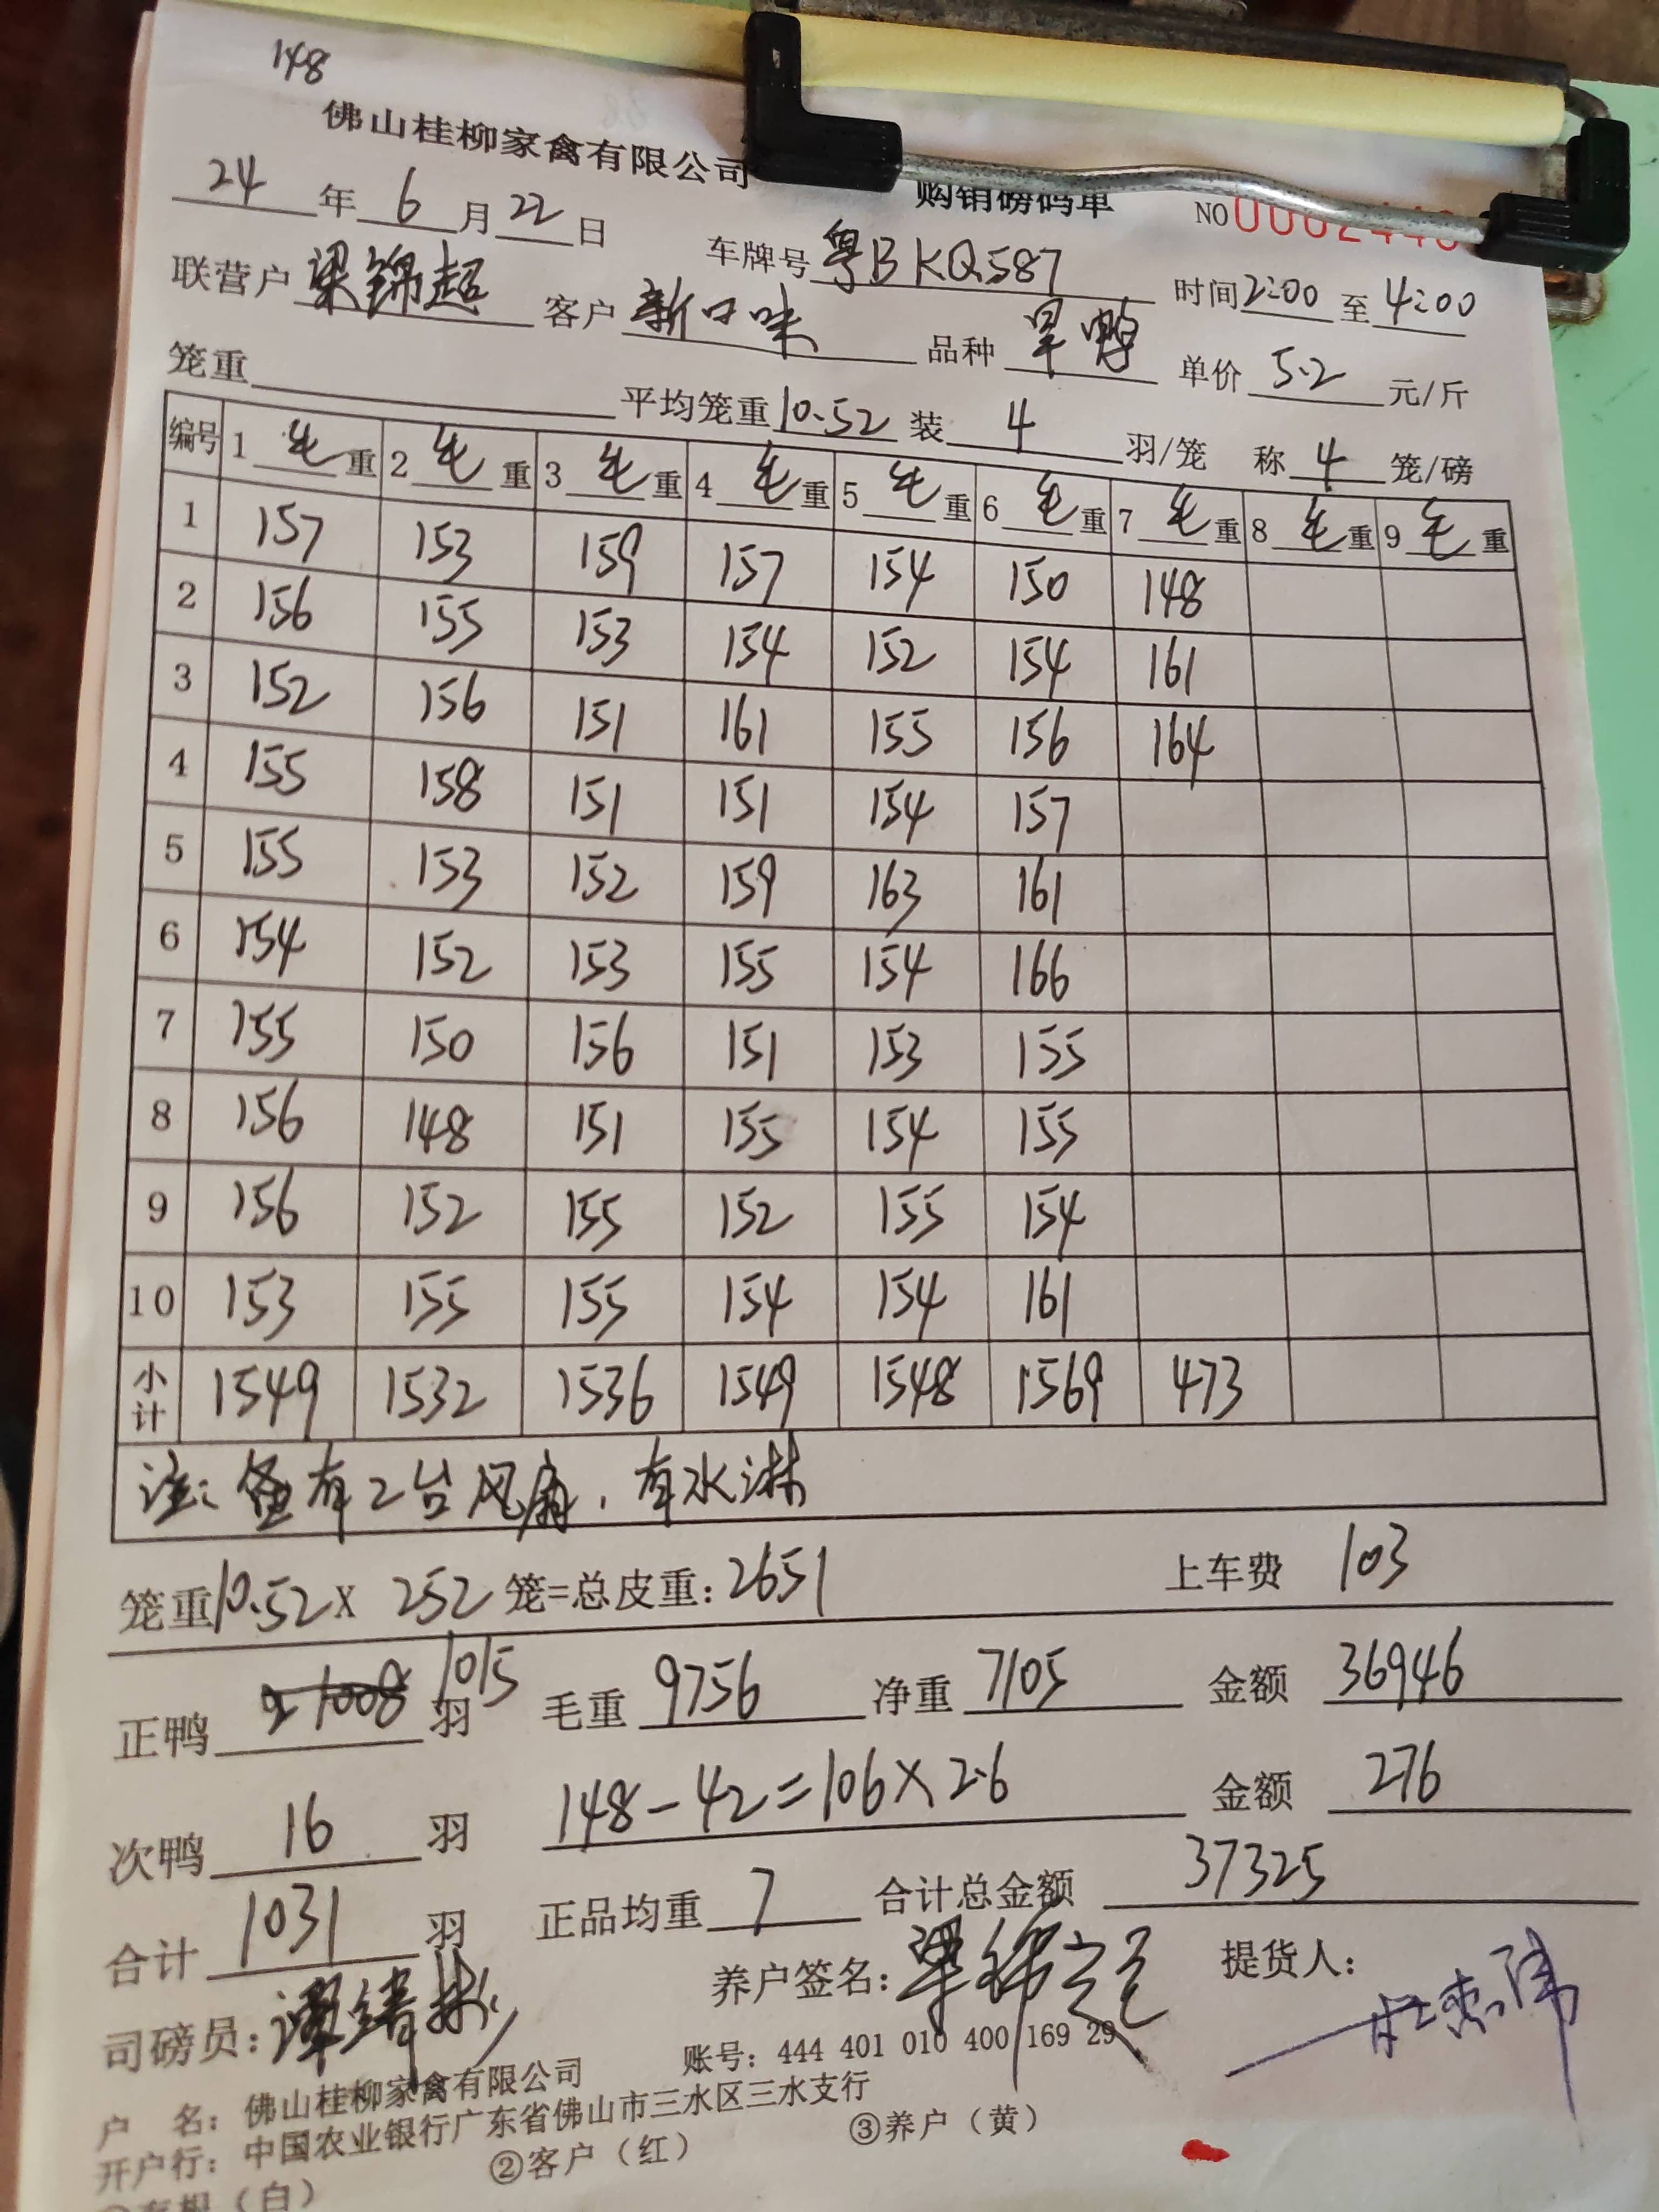 148
佛山桂柳家禽有限公司 购销磅码单 NO
24 年 6 月 22 日 车牌号 粤BKQ587 时间 2:00 至 4:00
联营户 梁锦超 客户 新口味 品种 旱鸭 单价 5.2 元/斤
笼重 平均笼重 10.52 装 4 羽/笼 称 4 笼/磅
编号 1 毛 重 2 毛 重 3 毛 重 4 毛 重 5 毛 重 6 毛 重 7 毛 重 8 毛 重 9 毛 重
1 157 153 159 157 154 150 148
2 156 155 153 154 152 154 161
3 152 156 151 161 155 156 164
4 155 158 151 151 154 157
5 155 153 152 159 163 161
6 154 152 153 155 154 166
7 155 150 156 151 153 155
8 156 148 151 155 154 155
9 156 152 155 152 155 154
10 153 155 155 154 154 161
小计 1549 1532 1536 1549 1548 1569 473
注: 备有2台风扇, 有水淋
笼重 10.52 X 252 笼=总皮重: 2651 上车费 103
正鸭 1008 1015 羽 毛重 9756 净重 7105 金额 36946
次鸭 16 羽 148-42=106×2.6 金额 276
合计 1031 羽 正品均重 7 合计总金额 37325
司磅员: 养户签名: 梁锦超 提货人:
户 名: 佛山桂柳家禽有限公司 账号: 444 401 010 400 169 29
开户行: 中国农业银行广东省佛山市三水区三水支行
(白) ②客户(红) ③养户(黄)